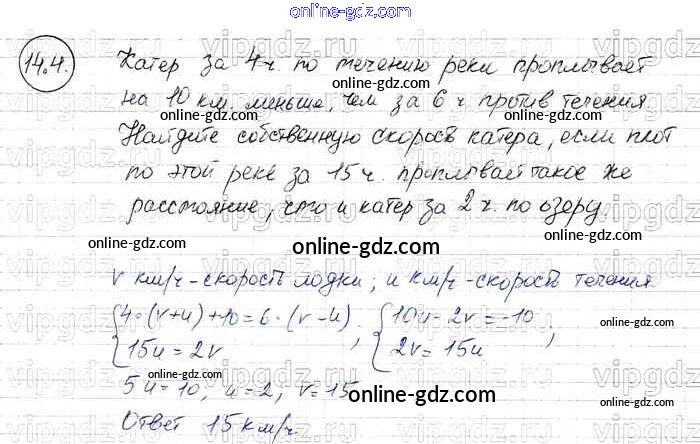 online-gdz.com
14.4. Катер за 4 ч. по течению реки проплывает
на 10 км. меньше, чем за 6 ч против течения.
online-gdz.com
Найдите собственную скорость катера, если плот
по этой реке за 15 ч. проплывает такое же
расстояние, что и катер за 2 ч. по озеру.
online-gdz.com
online-gdz.com
online-gdz.com
v км/ч - скорость лодки; u км/ч - скорость течения
{4·(v+u)+10=6·(v-u); {10u-2v=-10;
15u=2v 2v=15u
online-gdz.com
online-gdz.com
5u=10, u=2, v=15
online-gdz.com
Ответ 15 км/ч
online-gdz.com